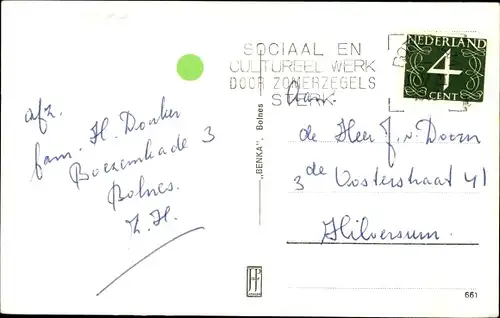 SOCIAAL EN
CULTUREEL WERK
DOOR ZOMERZEGELS
STERK
NEDERLAND
4
CENT
afz.
fam. H. Donker
Boezemkade 3
Bolnes.
Z.H.
"BENKA", Bolnes
Aan.
de Heer J. v. Doorn
3de Oosterstraat 41
Hilversum.
661